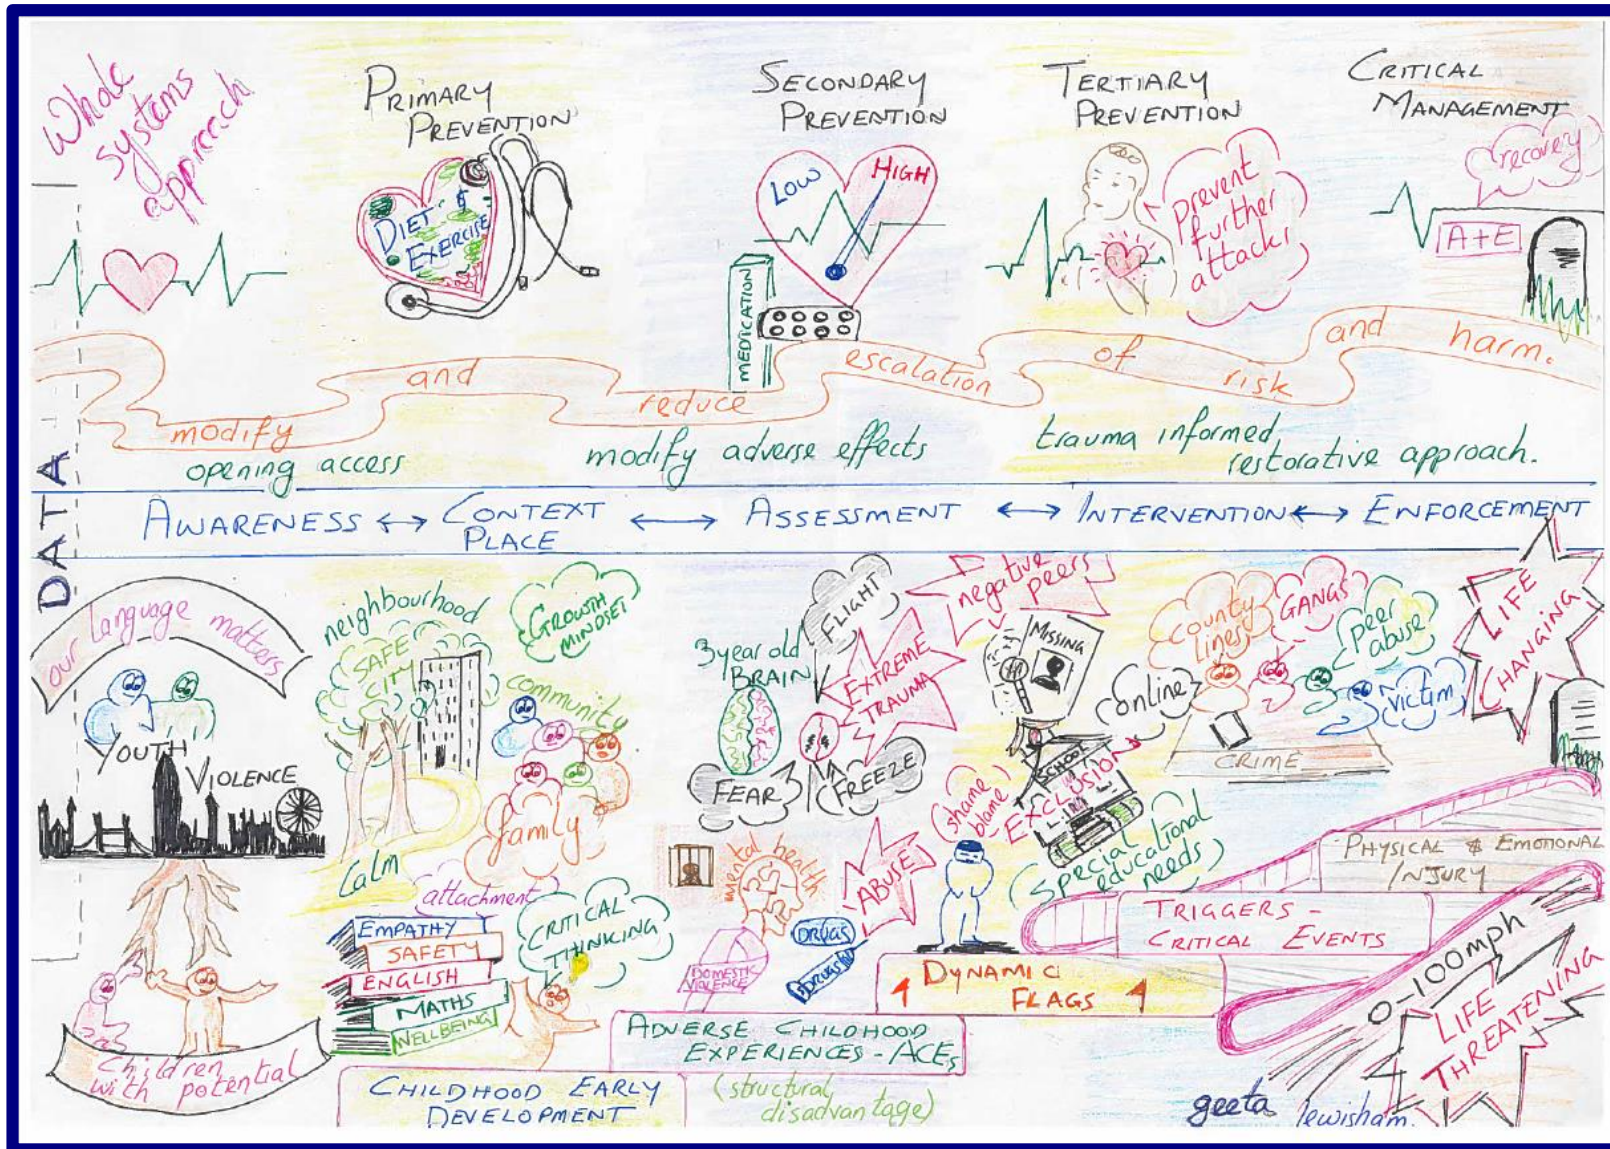 Whole
systems
approach
PRIMARY
PREVENTION
DIET &
EXERCISE
SECONDARY
PREVENTION
LOW
HIGH
MEDICATION
TERTIARY
PREVENTION
prevent
further
attack,
CRITICAL
MANAGEMENT
recovery
A+E
modify
and
reduce
escalation
of
risk
and
harm.
opening access
modify adverse effects
trauma informed
restorative approach.
DATA
AWARENESS ↔ CONTEXT ↔ ASSESSMENT ↔ INTERVENTION ↔ ENFORCEMENT
PLACE
our language matters
YOUTH
VIOLENCE
Children
with potential
neighbourhood
SAFE
CITY
GROWTH
MINDSET
community
family
Calm
attachment
EMPATHY
SAFETY
ENGLISH
MATHS
WELLBEING
CRITICAL
THINKING
CHILDHOOD EARLY
DEVELOPMENT
3 year old
BRAIN
FLIGHT
EXTREME
TRAUMA
FEAR
FREEZE
negative
peers
mental health
ABUSE
DOMESTIC
VIOLENCE
DRUGS
DRUGS
ADVERSE CHILDHOOD
EXPERIENCES - ACEs
(structural
disadvantage)
MISSING
online
SCHOOL
EXCLUSION
shame
blame
Special
educational
needs
DYNAMIC
FLAGS
county
lines
GANGS
peer
abuse
victim
CRIME
LIFE
CHANGING
TRIGGERS -
CRITICAL EVENTS
PHYSICAL & EMOTIONAL
INJURY
0-100mph
LIFE
THREATENING
geeta
lewisham.